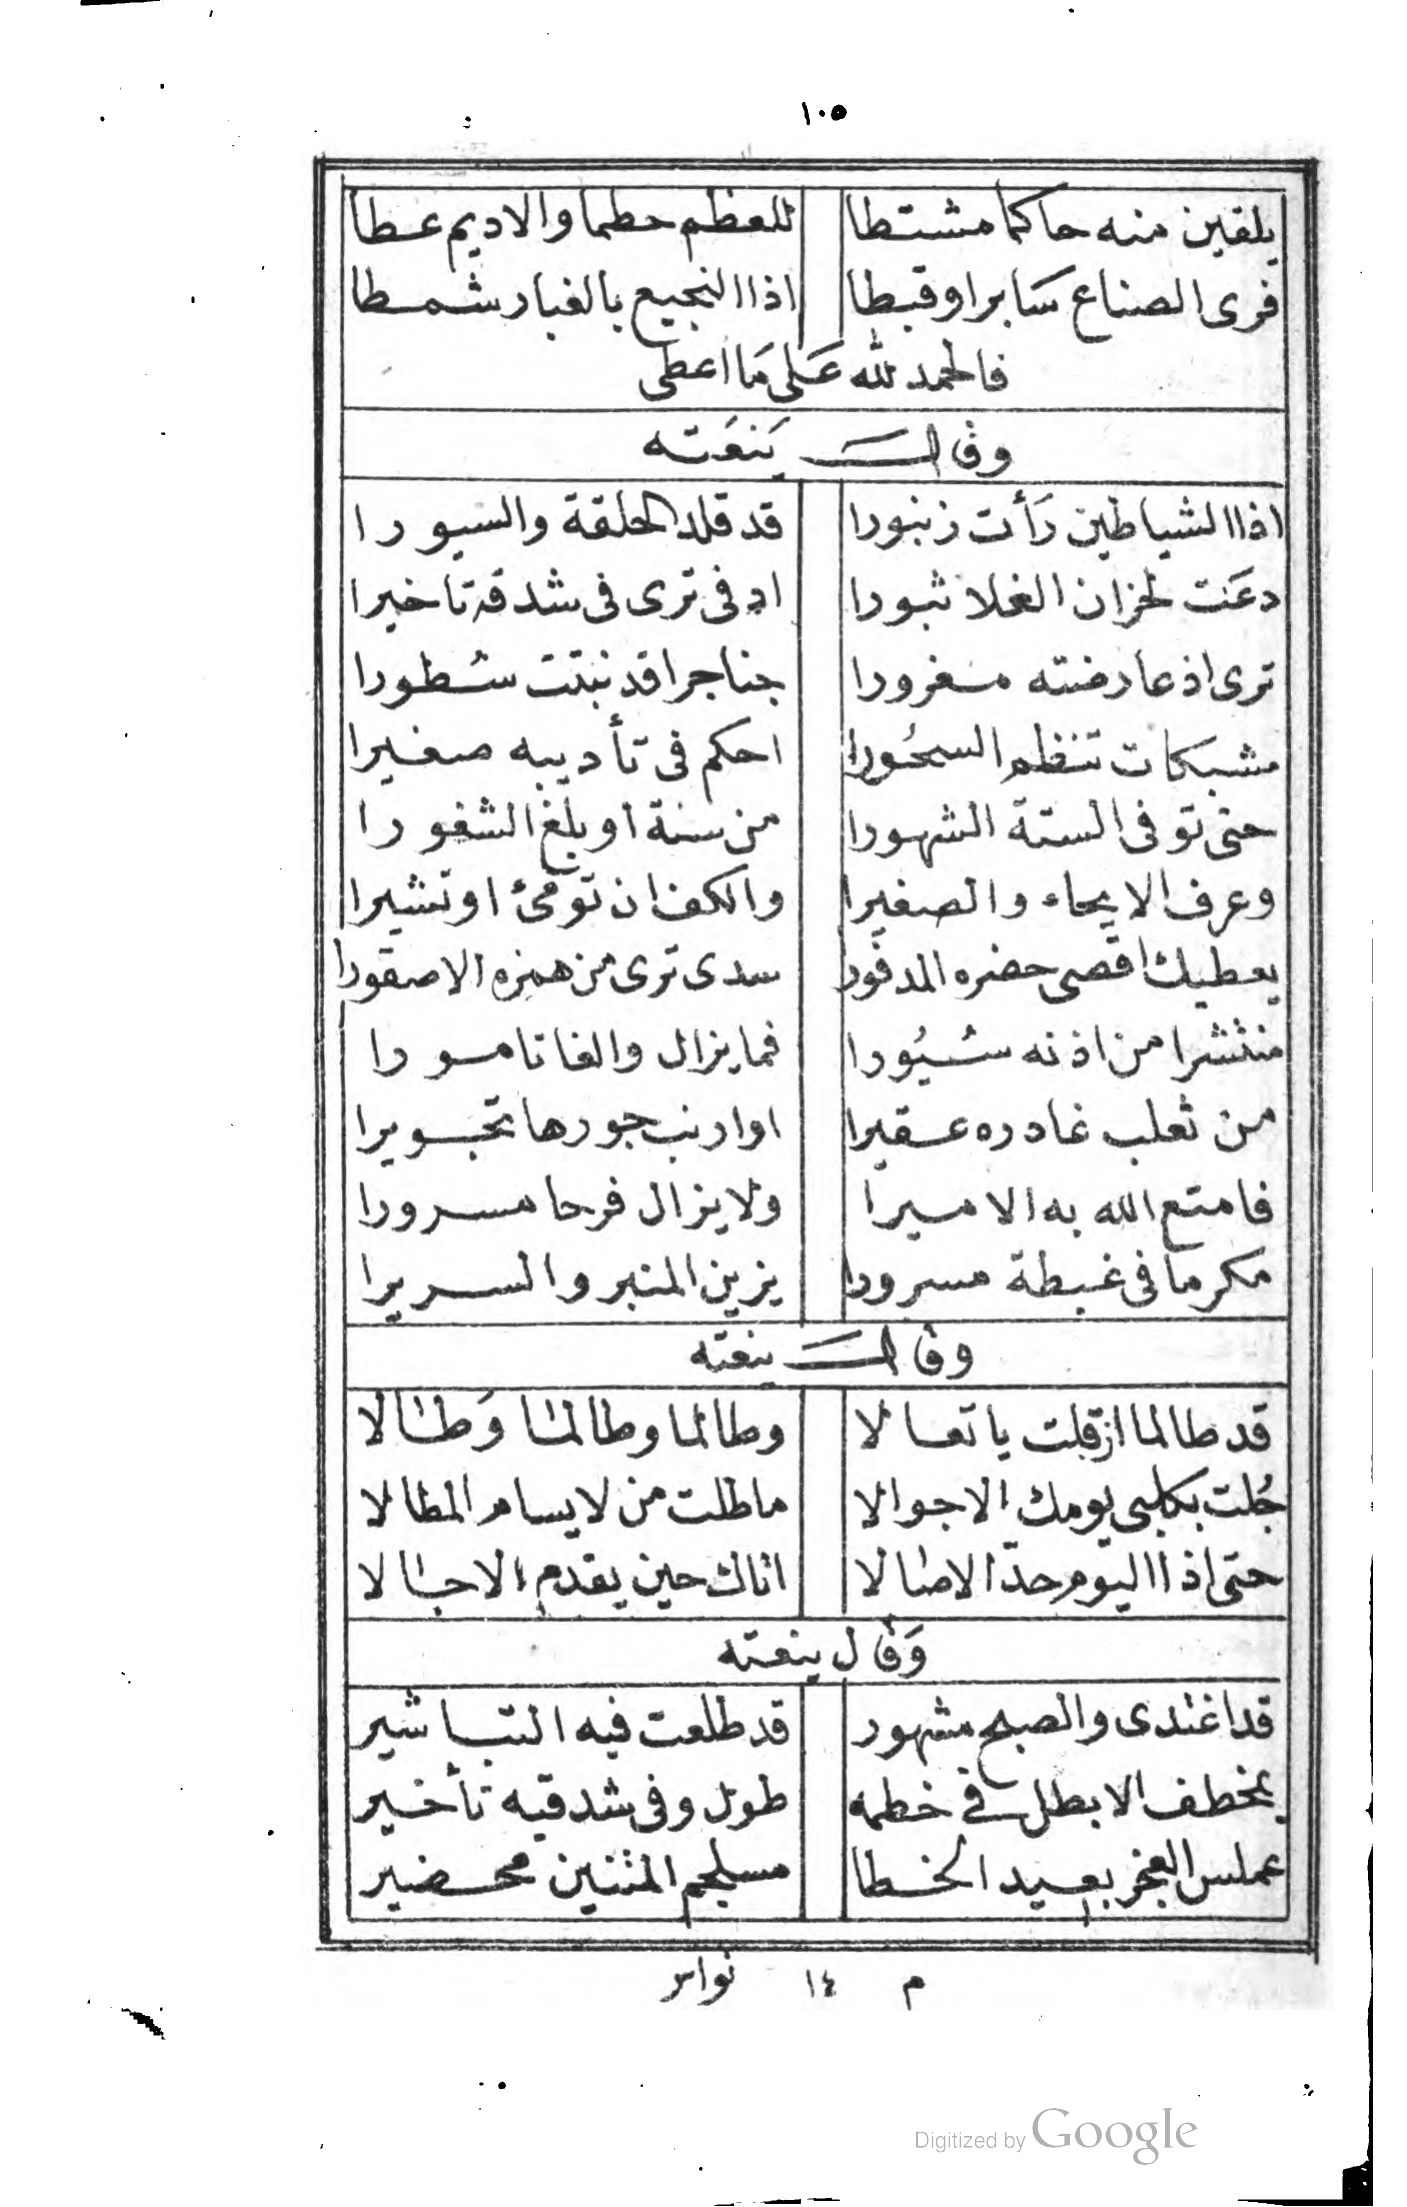 ١٠٥
يلقين منه حاكما مشتطا للعظم حطما والاديم عطا
فرى الصناع سَابرا وقبطا اذا النجيع بالغبار شمطا
فالحمد لله عَلى مَا اعطى
وقال يَنعَته
اذا الشياطين رَأت زنبورا قد قلد الحلقة والسيورا
دعَت لخزان الغلا ثبورا ادفى ترى فى شدقه تاخيرا
ترى اذ عارضته مغرورا جناجرا قد نبتت سُطورا
مشبكات تنظم السحُورا احكم فى تأديبه صغيرا
حتى توفى الستة الشهورا من سنة او بلغ الشغورا
وعرف الايحاء والصفيرا والكف ان تومئ او تشيرا
يعطيك اقصى حضره المدفورا سدى ترى من همزه الاصقورا
منتشرا من اذنه سُيُورا فما يزال والغا تامورا
من ثعلب غادره عقيرا او ارنب جورها تجويرا
فامتع الله به الاميرا ولا يزال فرحا مسرورا
مكرما فى غبطة مسرورا يزين المنبر والسريرا
وقال ينعته
قد طالما ازقلت يا تعالا وطالما وطالما وَطالا
جُلت بكلبى يومك الاجوالا ماطلت من لا يسام المطالا
حتى اذا اليوم حدّ الاصالا اتاك حين يقدم الاجالا
وَقال ينعته
قد اغتدى والصبح مشهور قد طلعت فيه التباشير
بمخطف الابطل فى خطمه طول وفى شدقيه تأخير
عملس العجز بعيد الخطا مسلجم المتنين محضير
م ١٤ نواس
Digitized by Google